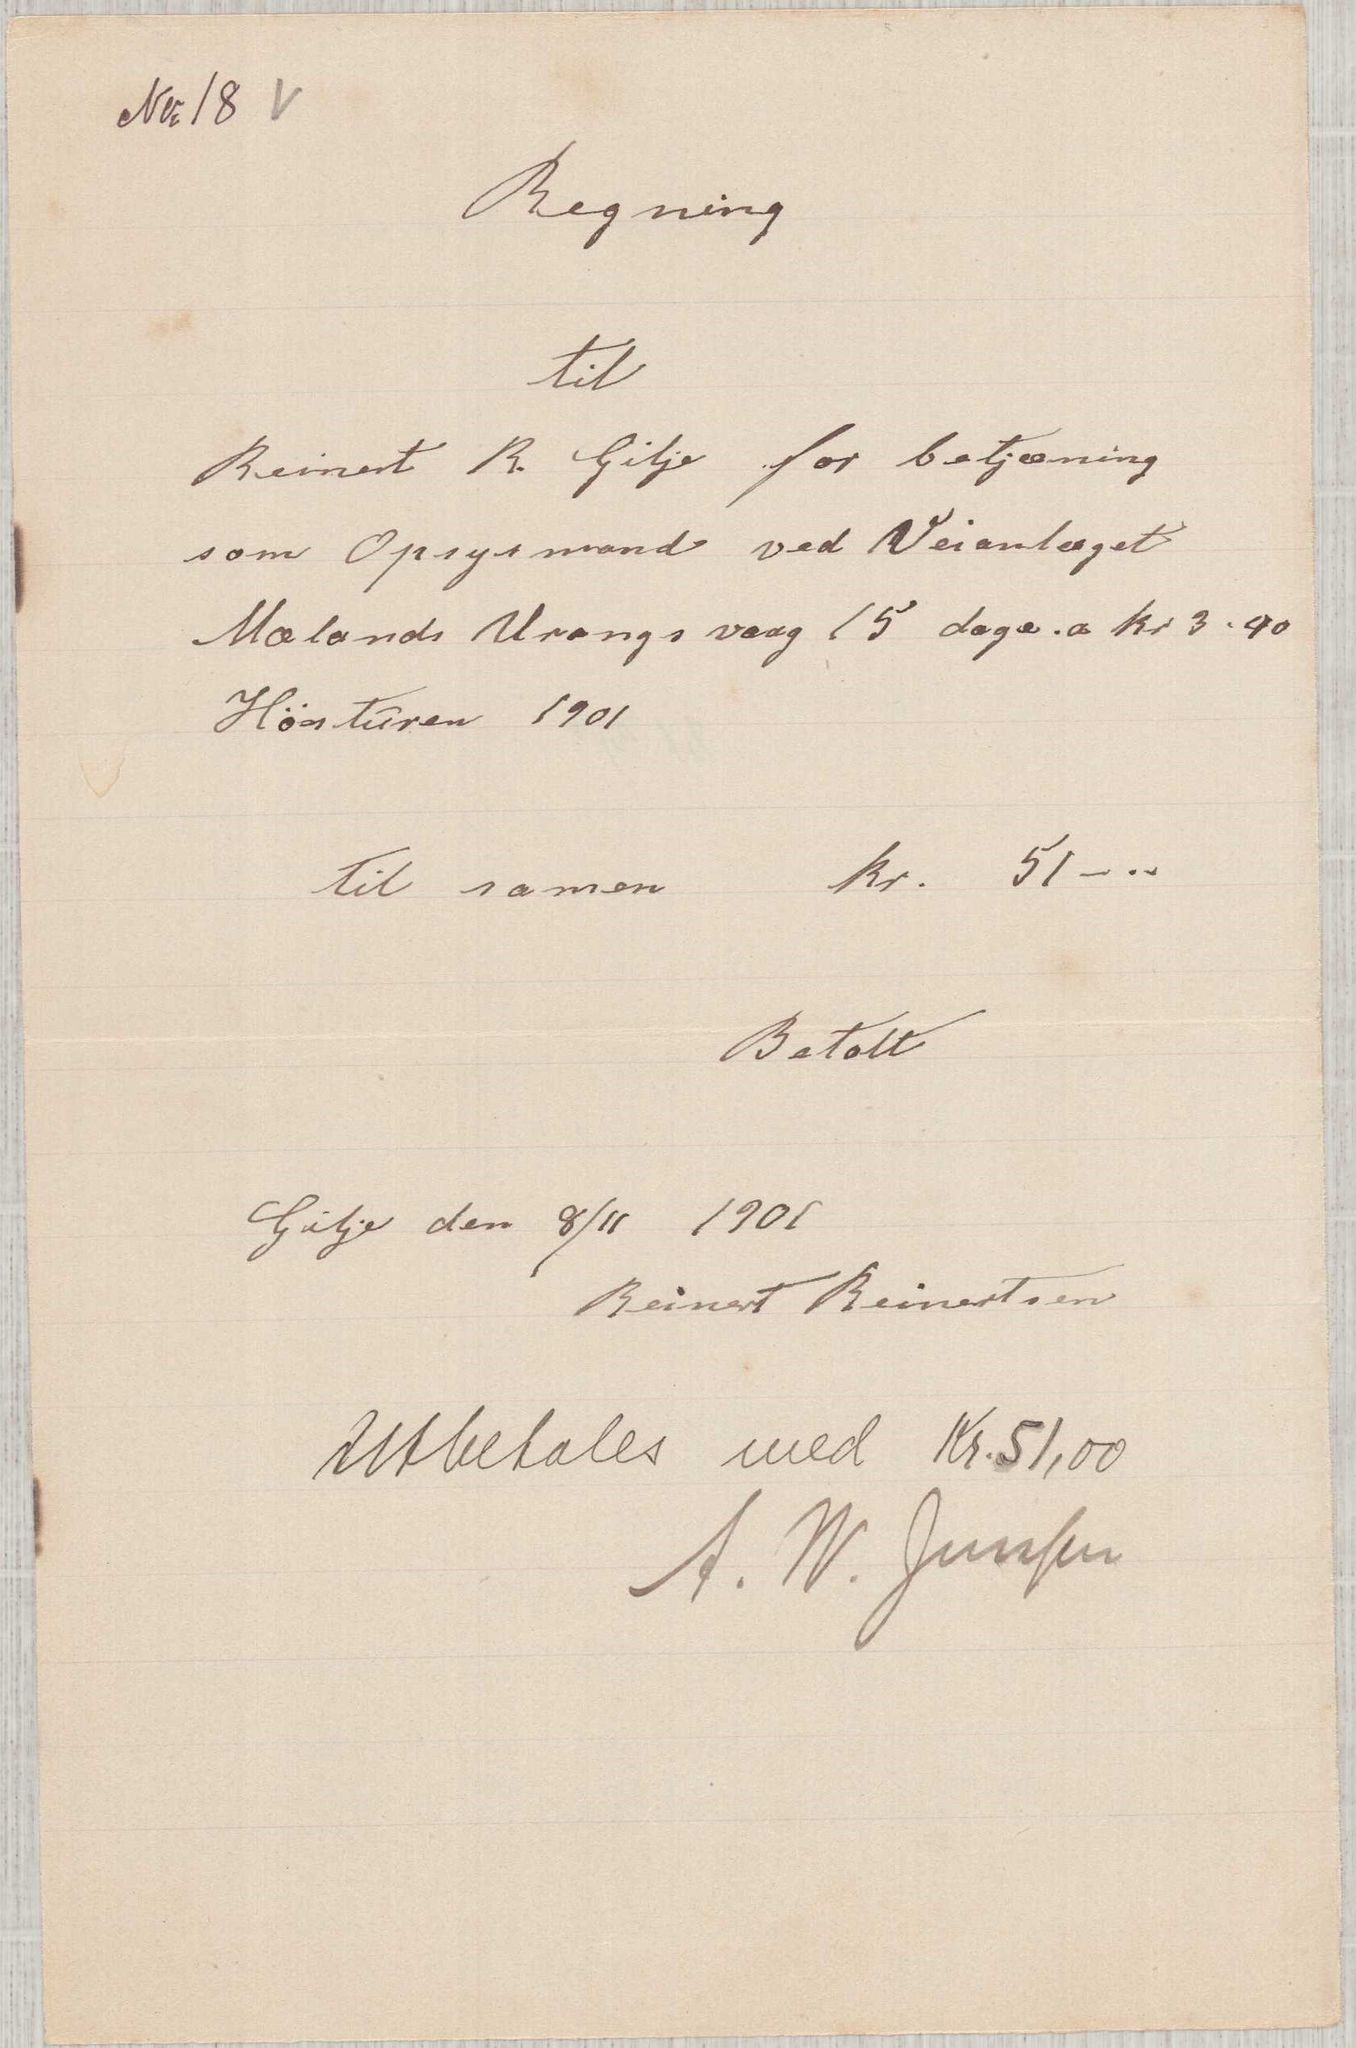 No. 18 V
Regning
til
Reinert R. Gilje for betjening
som Opsysmand ved Veianlæget
Mælands Urangsvaag 15 dage. a kr 3.40
Hösturen 1901
til samen kr. 51 - ..
Betalt
Gilje den 8/11 1901
Reinert Reinertsen
Utbetales med Kr. 51,00
A. W. Jensen